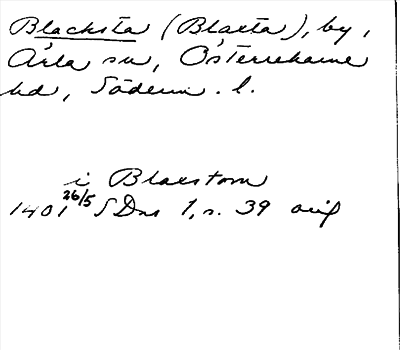 Blacksta (Blaxta), by,
Ärla sn, Österrekarne
hd, Söderm. l.
i Blaxstom
1401 26/5 SDns 1, s. 39 orig